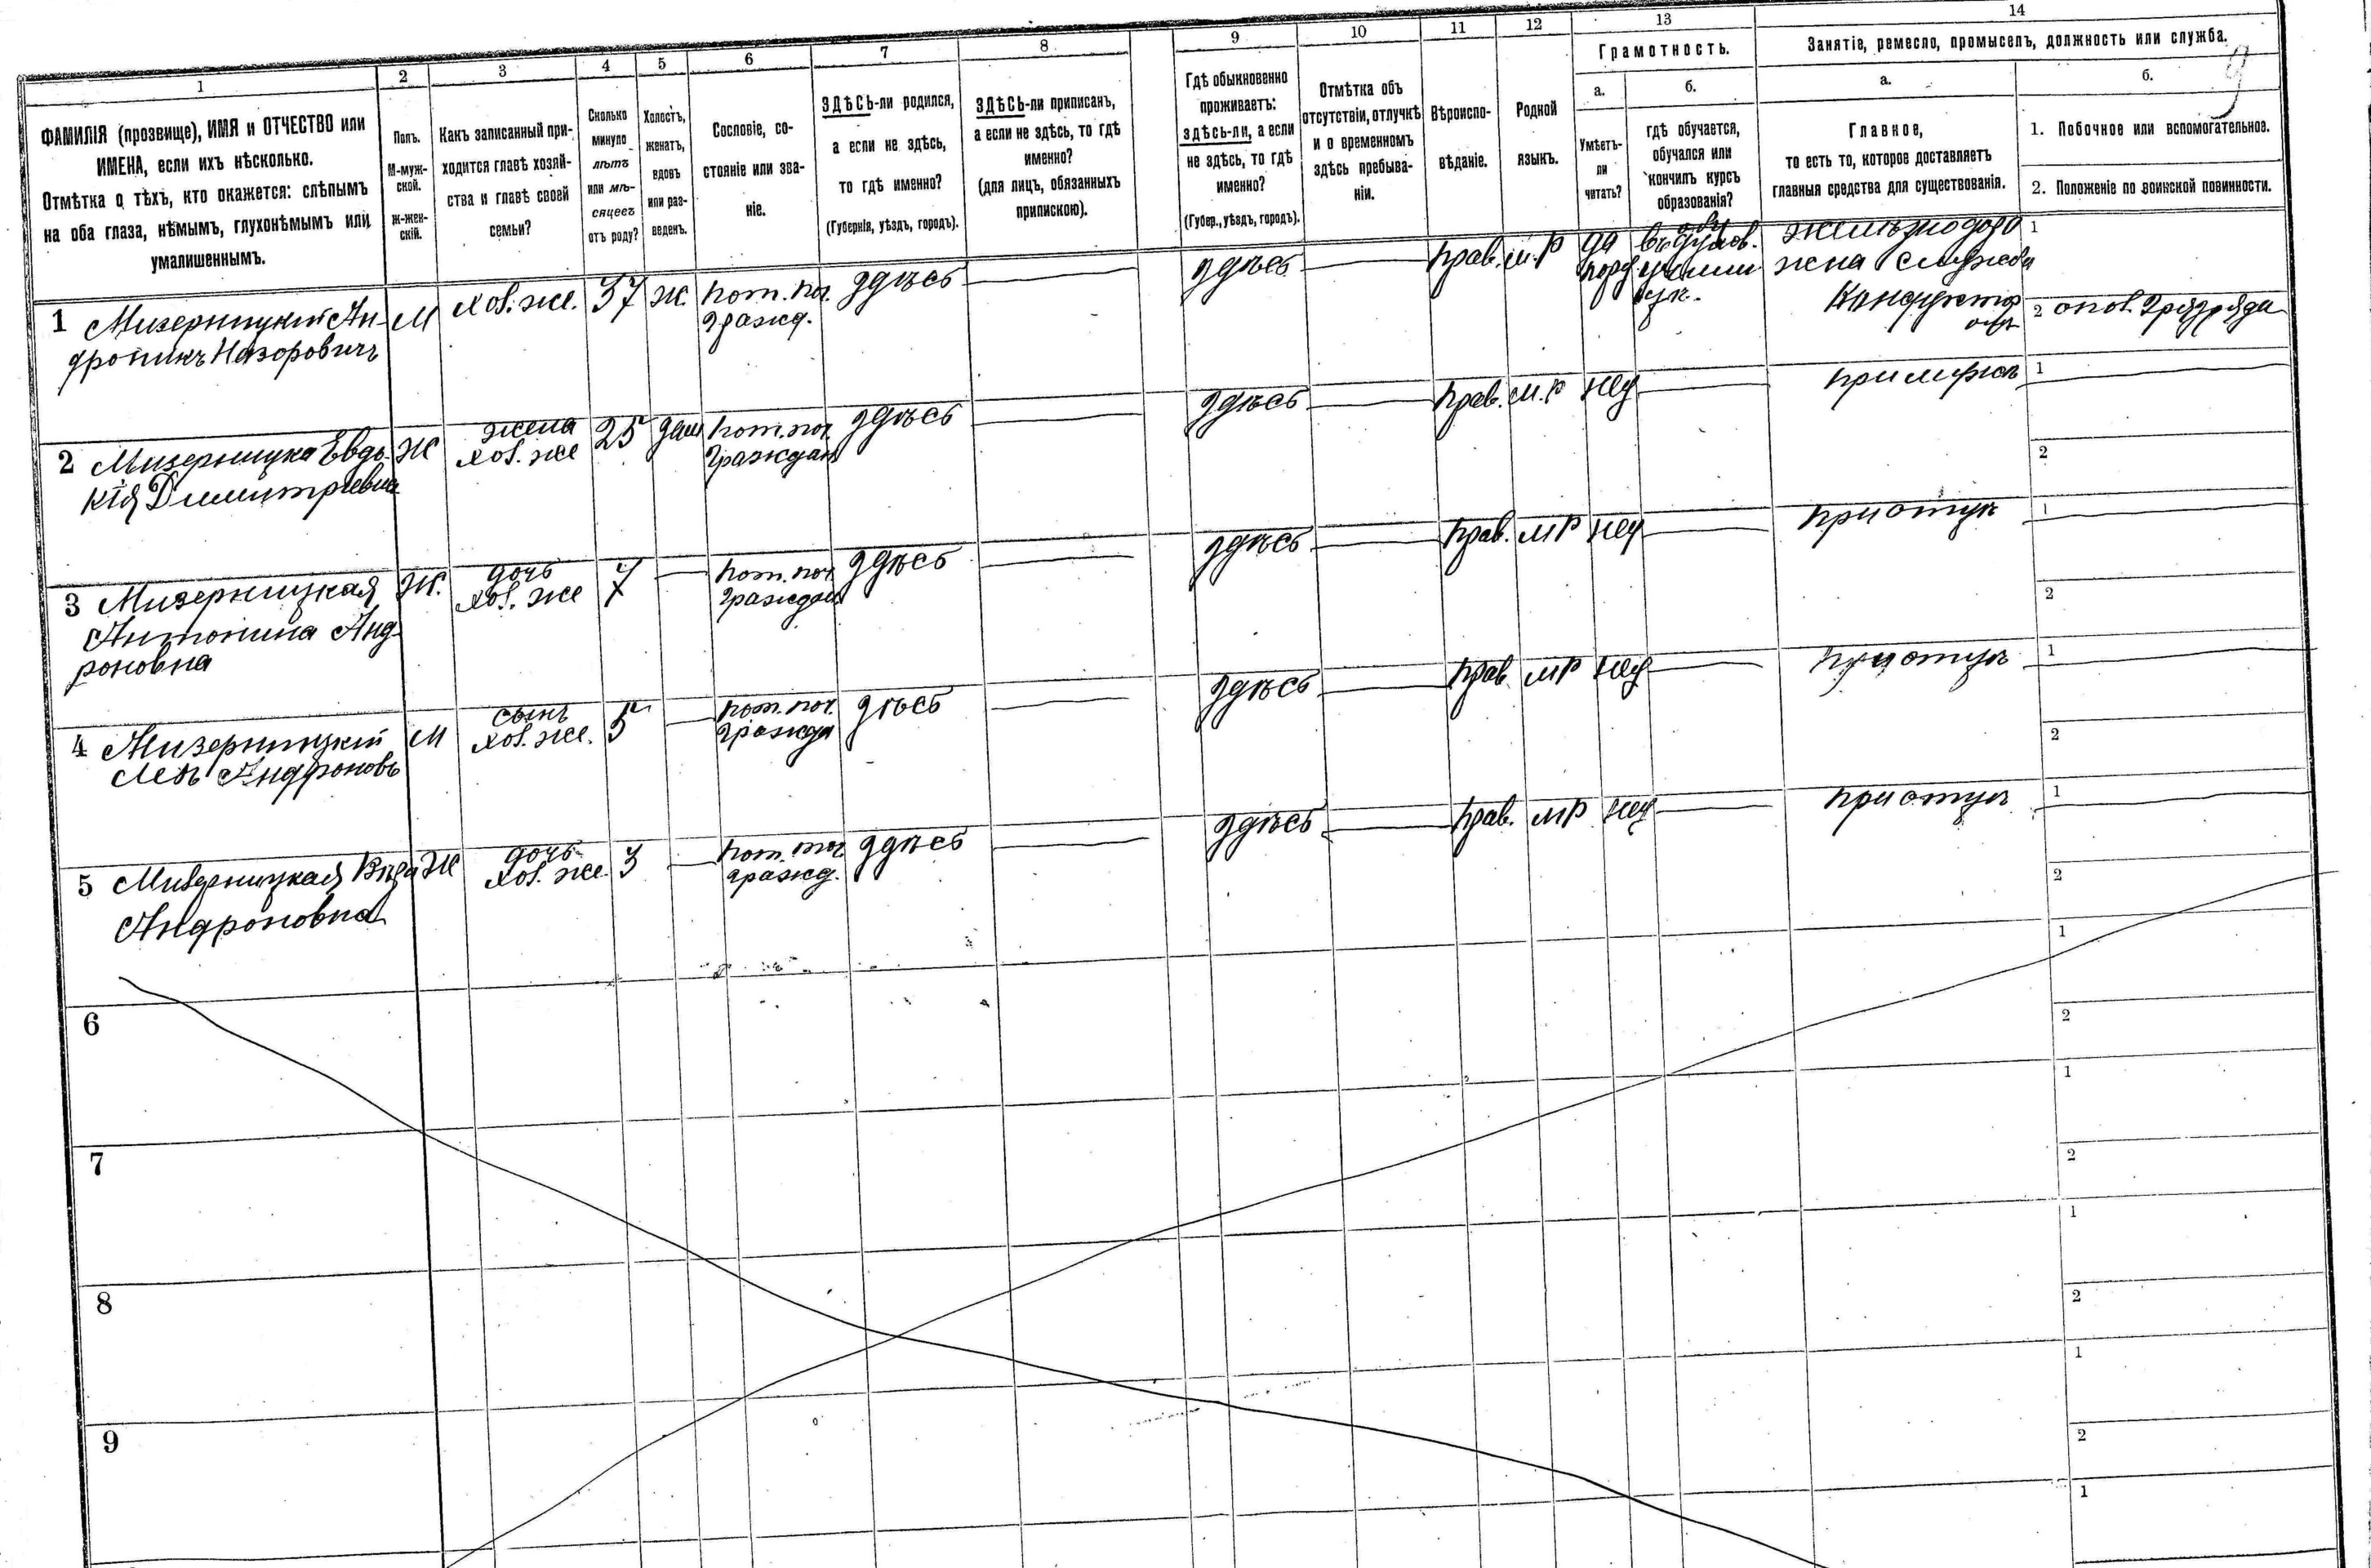 1 2 3 4 5 6 7 8 9 10 11 12 13 14
ФАМИЛІЯ (прозвище), ИМЯ и ОТЧЕСТВО или
ИМЕНА, если ихъ нѣсколько.
Отмѣтка о тѣхъ, кто окажется: слѣпымъ
на оба глаза, нѣмымъ, глухонѣмымъ или
умалишеннымъ.
Полъ.
М-муж-
ской.
ж-жен-
скій.
Какъ записанный при-
ходится главѣ хозяй-
ства и главѣ своей
семьи?
Сколько
минуло
лѣтъ
или мѣ-
сяцевъ
отъ роду?
Холостъ,
женатъ,
вдовъ
или раз-
веденъ.
Сословіе, со-
стояніе или зва-
ніе.
ЗДѢСЬ-ли родился,
а если не здѣсь,
то гдѣ именно?
(Губернія, уѣздъ, городъ).
ЗДѢСЬ-ли приписанъ,
а если не здѣсь, то гдѣ
именно?
(для лицъ, обязанныхъ
припискою).
Гдѣ обыкновенно
проживаетъ:
здѣсь-ли, а если
не здѣсь, то гдѣ
именно?
(Губер., уѣздъ, городъ).
Отмѣтка объ
отсутствіи, отлучкѣ
и о временномъ
здѣсь пребыва-
ніи.
Вѣроиспо-
вѣданіе.
Родной
языкъ.
Грамотность.
а.
Умѣетъ-
ли
читать?
б.
гдѣ обучается,
обучался или
кончилъ курсъ
образованія?
Занятіе, ремесло, промыселъ, должность или служба.
9
а.
Главное,
то есть то, которое доставляетъ
главныя средства для существованія.
б.
1. Побочное или вспомогательное.
2. Положеніе по воинской повинности.
1 Мизерницкій Ан- М хоз. же. 37 ж. пот. поч. здѣсь здѣсь прав. м. р да въ духов. желѣзнодоро 1
дроникъ Назоровичъ гражд. училищ жна служба
Кондукторъ 2 опол. 2 разряда
2 Мизерницка Евдо- Ж жена 25 пот. поч. здѣсь здѣсь прав. м. р нет при мужѣ 1
кія Димитріевна хоз. же граждан 2
3 Мизерницкая Ж. дочь 7 пот. поч. здѣсь здѣсь прав. м р нет при отцѣ 1
Антонина Анд- хоз. же граждан 2
роновна
4 Мизерницкій М сынъ 5 пот. поч. здѣсь здѣсь прав. м р нет при отцѣ 1
Левъ Андроновъ хоз. же. гражда 2
5 Мизерницкая Вѣра Ж дочь 3 пот. поч здѣсь здѣсь прав. м р нет при отцѣ 1
Андроновна хоз. же. гражд. 2
6 1
2
7 1
2
8 1
2
9 1
2
1